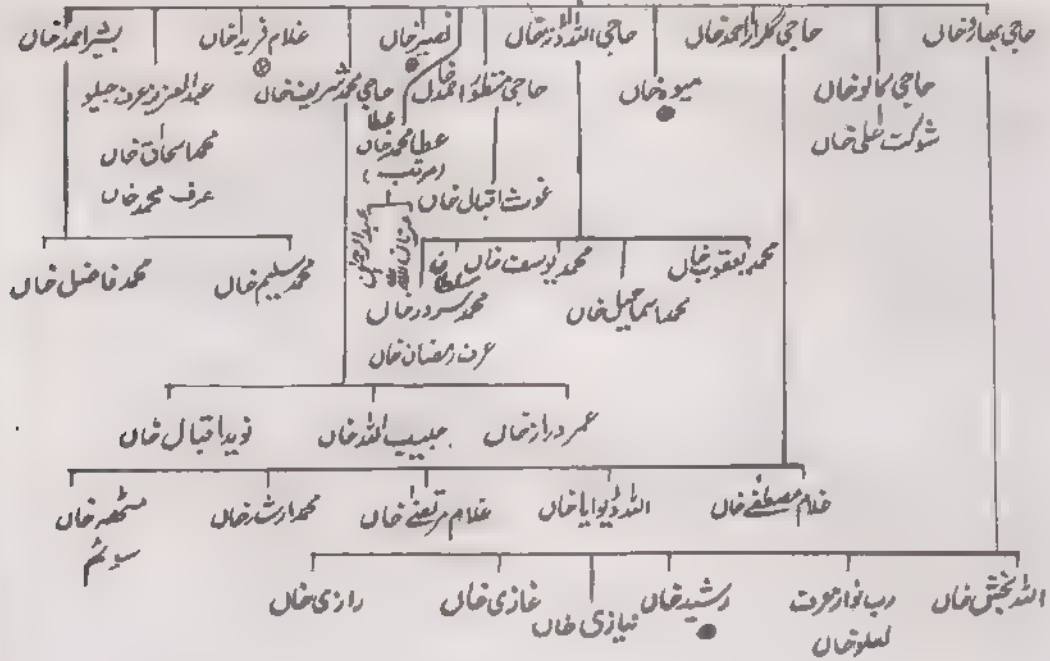 حاجی بہادر خاں
حاجی گلزار احمد خاں
حاجی اللہ دتہ خاں
نصیر خاں
غلام فرید خاں
بشیر احمد خاں
حاجی کالو خاں
شوکت علی خاں
میوہ خاں
حاجی منظور احمد خاں
غوث اقبال خاں
عطا محمد خاں
(مرتب)
حاجی محمد شریف خاں
عبدالعزیز عرف جیلو
محمد اسحاق خاں
عرف محمد خاں
عبدالرحمٰن
محمد یعقوب خاں
محمد اسماعیل خاں
محمد یوسف خاں
محمد سرور خاں
عرف رمضان خاں
محمد سلیم خاں
محمد فاضل خاں
عمر دراز خاں
حبیب اللہ خاں
نوید اقبال خاں
غلام مصطفےٰ خاں
اللہ ڈیوایا خاں
غلام مرتضےٰ خاں
محمد ارشد خاں
اللہ بخش خاں
رب نواز عرف
لعلو خاں
رشید خاں
نیازی خاں
غازی خاں
رازی خاں